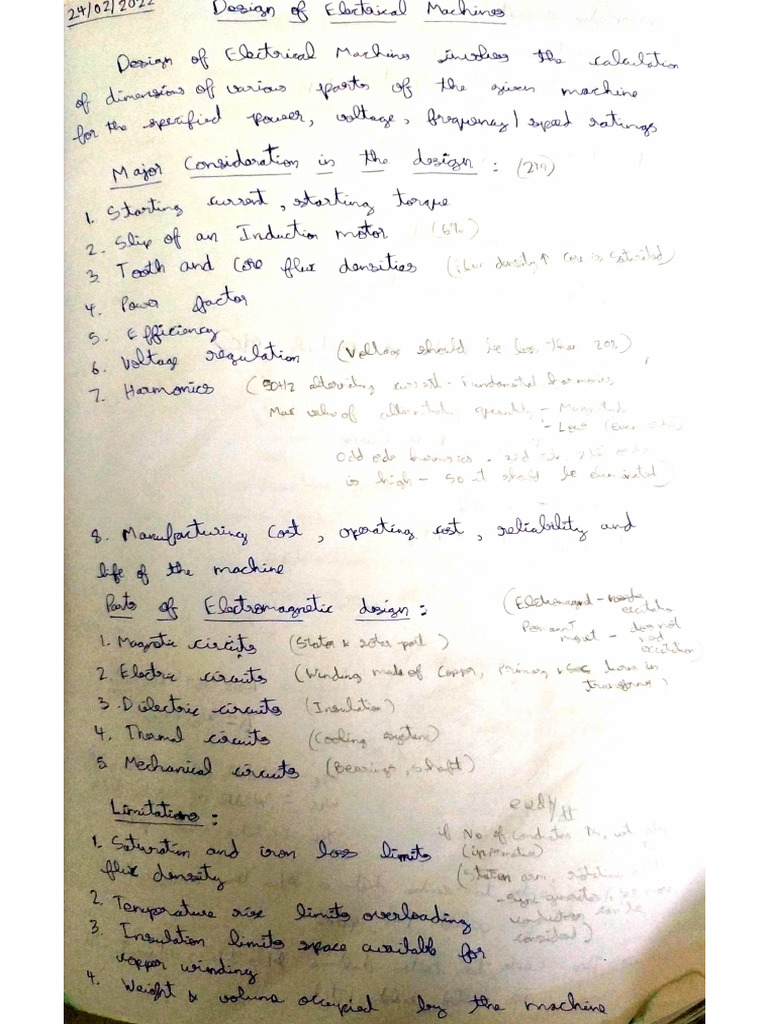 24/02/2022
Design of Electrical Machines
Design of Electrical Machines involves the calculation
of dimensions of various parts of the given machine
for the specified power, voltage, frequency/speed ratings
Major Consideration in the design : (2m)
1. Starting current, starting torque
2. Slip of an Induction motor (5%)
3. Tooth and Core flux densities (flux density↑ Core is Saturated)
4. Power factor
5. Efficiency
6. Voltage regulation (Voltage should be less than 20%)
7. Harmonics (50Hz alternating current - Fundamental harmonics
Max value of alternating quantity - Magnitude
- Less (even
Odd harmonics -
is high - So it should be eliminated)
8. Manufacturing Cost, operating cost, reliability and
life of the machine
Parts of Electromagnetic design :
(Electromagnet - needs
excitation
Permanent
magnet - does not
need
excitation)
1. Magnetic circuits (Stator & rotor part)
2. Electric circuits (Winding made of Copper, Primary & Sec in
transformer)
3. Dielectric circuits (Insulation)
4. Thermal circuits (Cooling system)
5. Mechanical circuits (Bearings, shaft)
Limitations :
if No. of conductors
1. Saturation and iron loss limits
flux density
2. Temperature rise limits overloading
3. Insulation limits space available for
copper winding
4. Weight & volume occupied by the machine